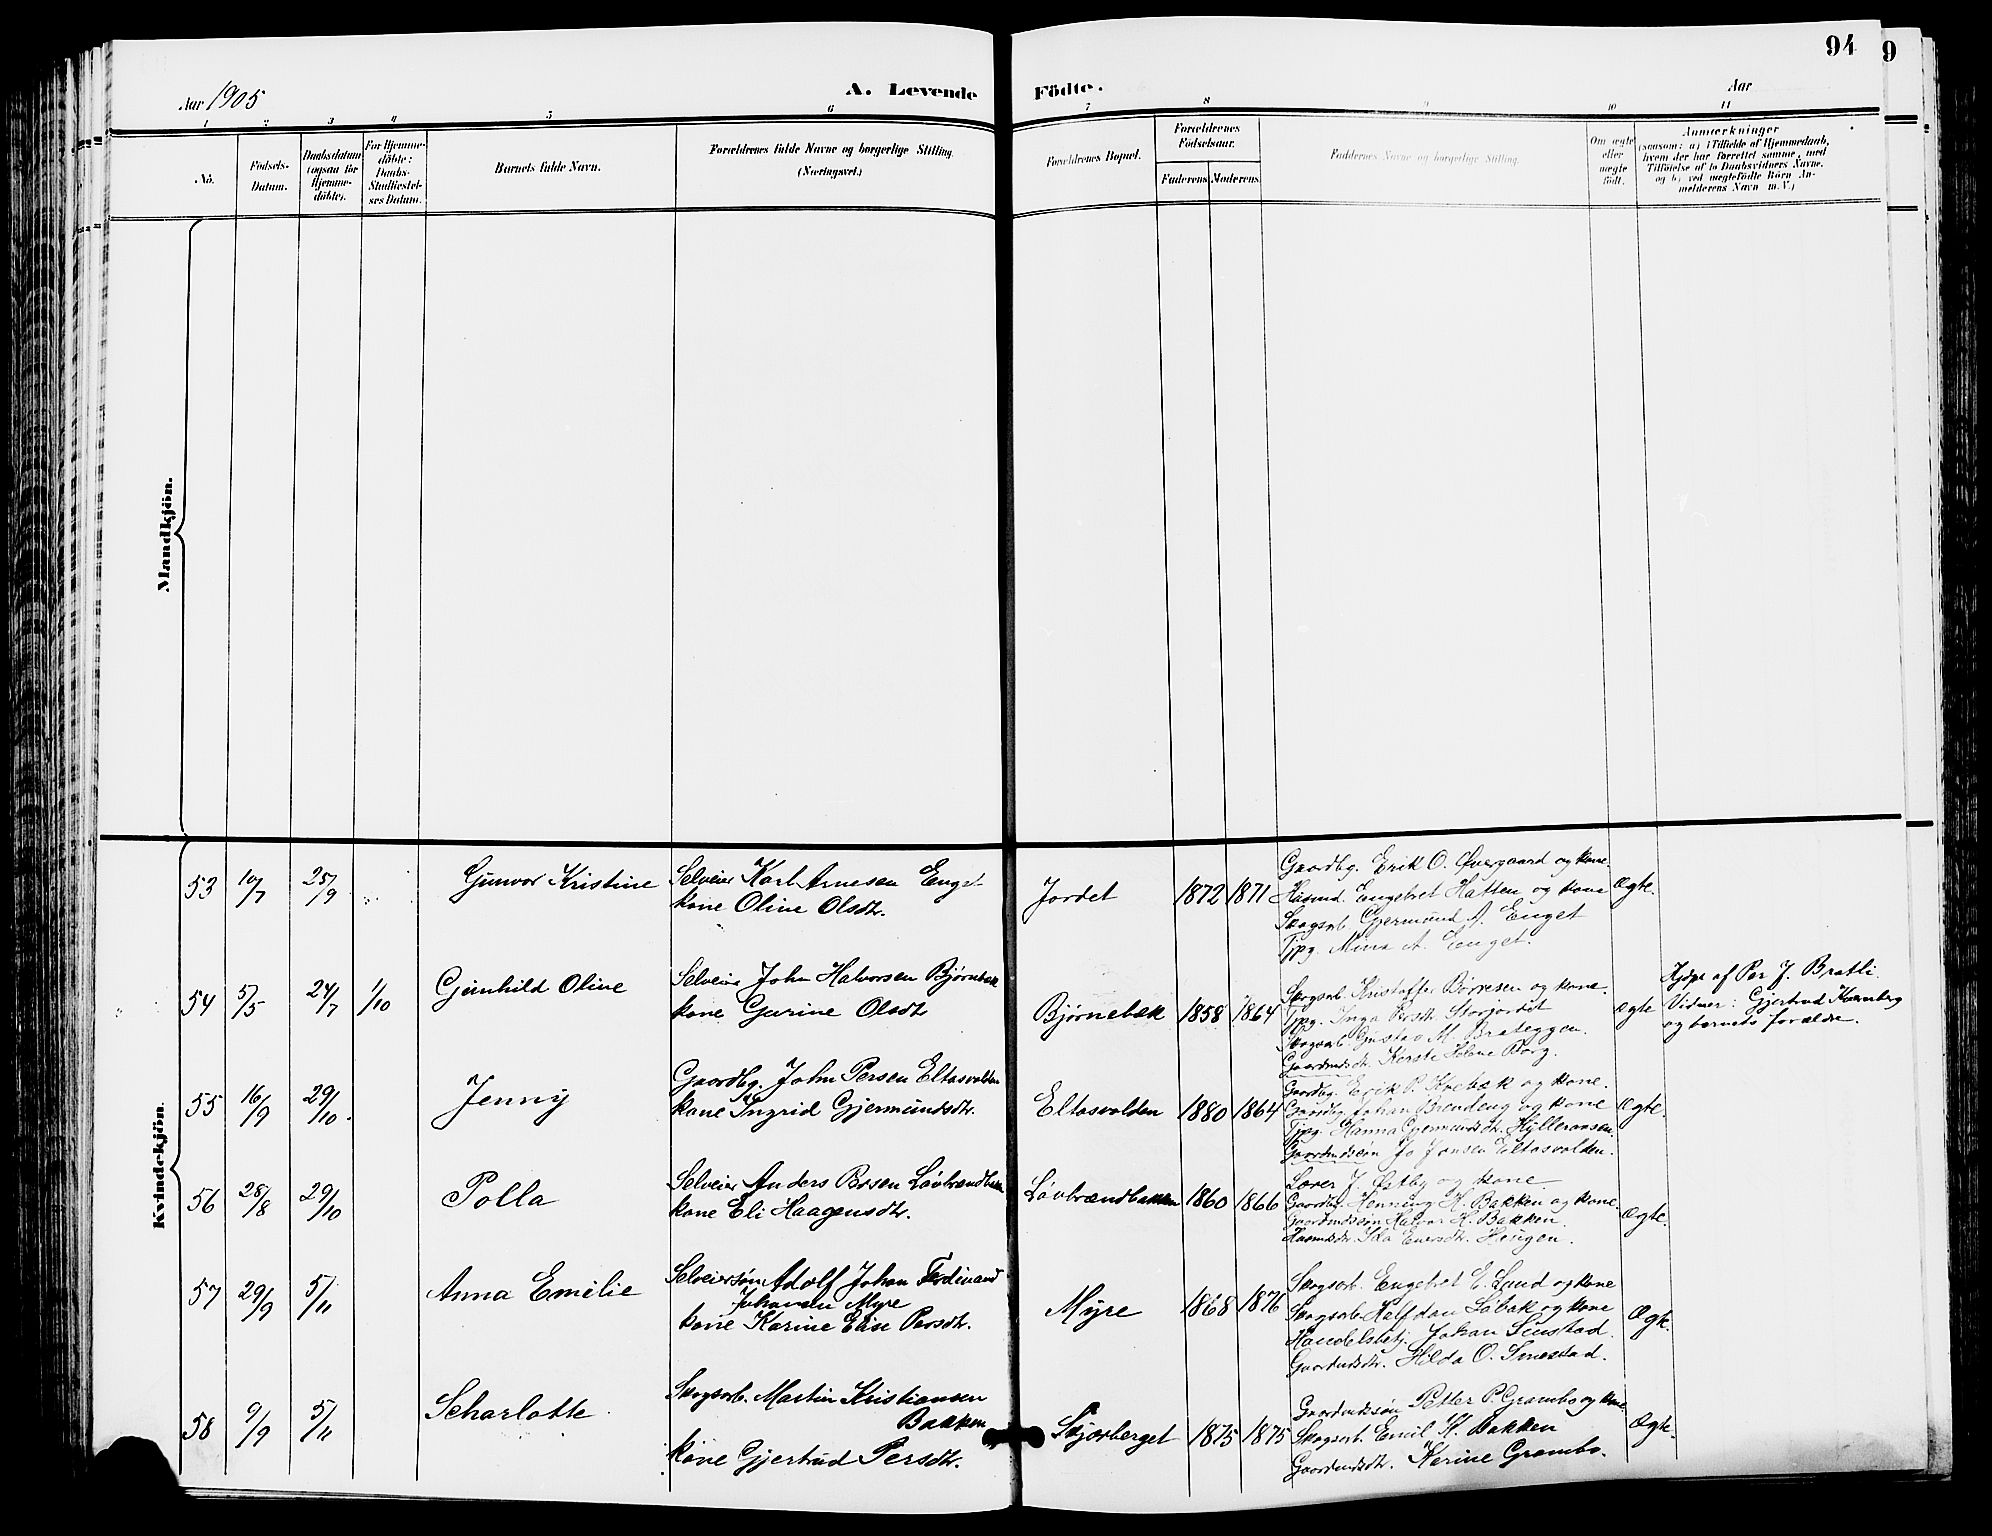 94
9
Aar 1905
A. Levende Födte.
Aar
1 2 3 4 5 6 7 8 9 10 11
No.
Födsels-
Datum.
Daabsdatum
(ogsaa for
Hjemme-
döbte).
For Hjemme-
döbte:
Daabs-
Stadfæstel-
ses Datum.
Barnets fulde Navn.
Forældrenes fulde Navne og borgerlige Stilling.
(Næringsvei.)
Forældrenes Bopæl.
Forældrenes
Födselsaar.
Faderens Moderens
Faddernes Navne og borgerlige Stilling.
Om ægte
eller
uægte
födt.
Anmærkninger
(saasom: a) i Tilfælde af Hjemmedaab,
hvem der har forrettet samme, med
Tilföielse af to Daabsvidners Navne,
og b) ved uægtefödte Börn An-
melderens Navn m. V.)
Mandkjön.
Kvindekjön.
53 10/7 25/9 Gunvor Kristine
Selveier Karl Arnesen Enget
kone Oline Olsdtr.
Jordet 1872 1871
Gaardbg. Erik O. Øvergaard og kone.
Husmd. Engebret Hatten og kone
Skogsarb. Gjermund A. Enget
Tjpg. Mina A. Enget.
Ægte.
54 5/5 24/7 1/10 Gunhild Oline
Selveier John Halvorsen Bjørnebæk
kone Gurine Olsdt
Bjørnebæk 1858 1864
Skogsarb. Kristoffer Børresen og kone.
Tjpg. Inga Persdtr. Storjordet
Skogsarb. Gustav M. Brateggen.
Gaardmdsdtr. Helene Borg.
ægte
Hjdøpt af Per J. Bratli.
Vidner: Gjertrud
og barnets forældre.
55 16/9 29/10. Jenny
Gaardbg. John Persen Eltasvolden
kone Ingrid Gjermundsdtr.
Eltasvolden 1880 1864
Gaardbg. Erik P. og kone.
Gaardbg. Johan Brendeng og kone
Tjpg. Hanna Gjermundsdtr. Hylleraasen.
Gaardmdssøn Jo Jonsen Eltasvolden.
Ægte.
56 28/8 29/10 Polla
Selveier Anders Bosen Løvbrændbakken
kone Eli Haagensdtr.
Løvbrændbakken 1860 1866
Lærer J. Østby og kone
Gaardbg. Henning H. Bakken og kone.
Gaardmdssøn Halvor H. Bakken.
Husmdsdtr. Ida Haugen.
Ægte.
57 29/9 5/11 Anna Emilie
Selveiersøn Adolf Johan Ferdinand
Johansen Myre
kone Karine Elise Persdtr.
Myre 1868 1876
Skogsarb. Engebret E. Lund og kone
Skogsarb. Halfdan Løbak og kone
Handelsbetj. Johan Smestad.
Gaardmdsdtr. Hilda O. Smestad.
Ægte.
58 9/9 5/11 Scharlotte
Skogsarb. Martin Kristiansen
Bakken
kone Gjertrud Persdtr.
Skjærberget 1875 1875
Gaardmdssøn Petter P. Grambo og kone
Skogsarb. Emil K. Bakken
Gaardmdsdtr. Karine Grambo.
Ægte.